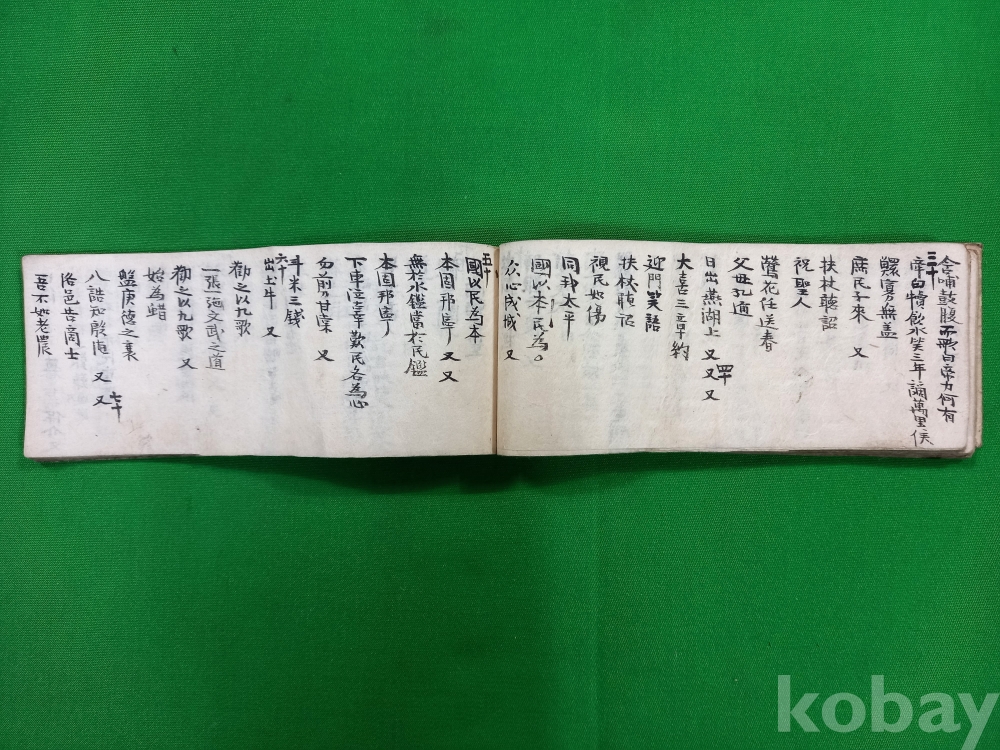 含哺鼓腹而歌曰帝力何有
三十
帝曰 飲水笑三年 萬里侯
無盖
庶民子來 又
扶杖聽詔
祝聖人
鶯花任送春
父母孔邇
日出燕湖上 又 又 又
四十
大喜三章約
迎門笑語
扶杖聽
視民如傷
同我太平
國以本民為〇
众心成城 又
五十
國以民為本
本固邦寧 又 又
無於水鑑當於民鑑
本固邦寧
下車泣辜歎民各為心
勿前刀甘棠 又
斗米三錢
六十
出土牛 又
勸之以九歌
一張弛文武之道
勸之以九歌 又
始為蜡
盤庚德之裏
八誥知殷 又 又
七十
洛邑告商士
吾不如老農
kobay